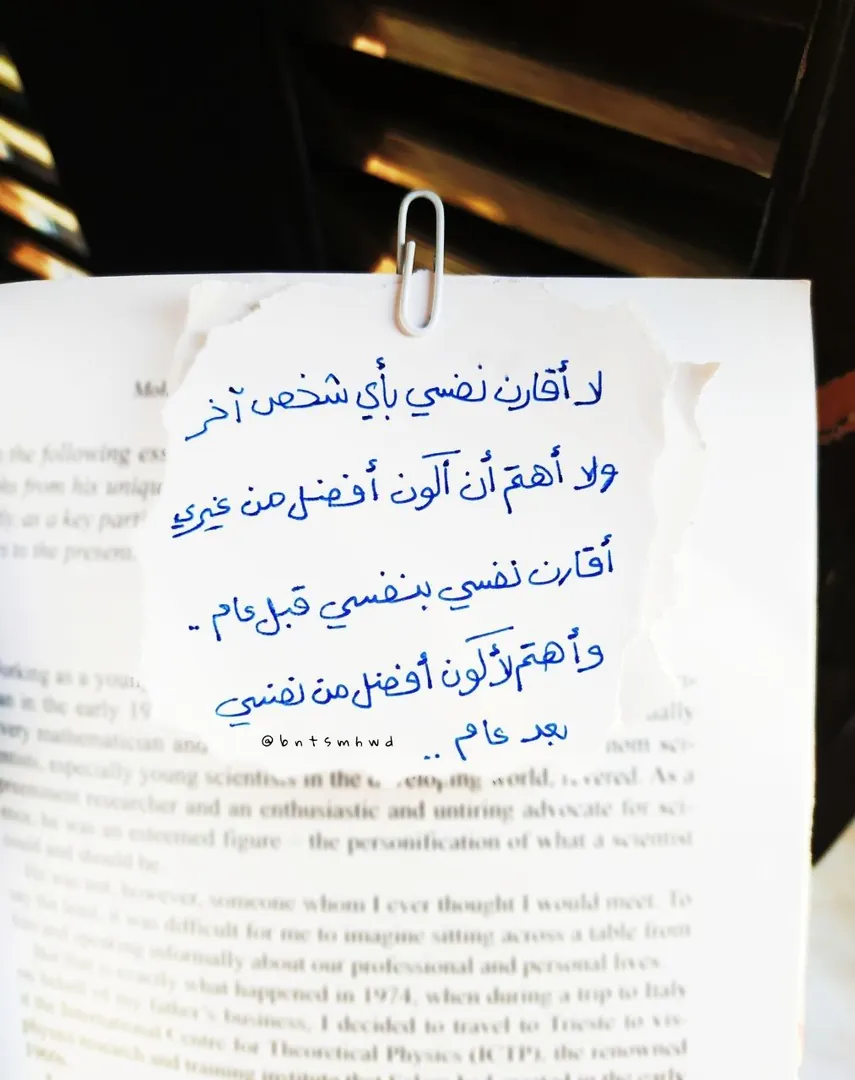 لا أقارن نفسي بأي شخص آخر
ولا أهتم أن أكون أفضل من غيري
أقارن نفسي بنفسي قبل عام ..
وأهتم لأكون أفضل من نفسي
بعد عام ..
@bntsmhwd
Mol
the following ess
from his uniqu
as a key part
to the present.
working as a young
in the early 19
very mathematician and
especially young scientists in the developing world, revered. As a
prominent researcher and an enthusiastic and untiring advocate for sci-
he was an esteemed figure – the personification of what a scientist
could and should be.
He was not, however, someone whom I ever thought I would meet. To
say the least, it was difficult for me to imagine sitting across a table from
him and speaking informally about our professional and personal lives.
But that is exactly what happened in 1974, when during a trip to Italy
on behalf of my father's business, I decided to travel to Trieste to vis-
it the International Centre for Theoretical Physics (ICTP), the renowned
physics research and training institute that